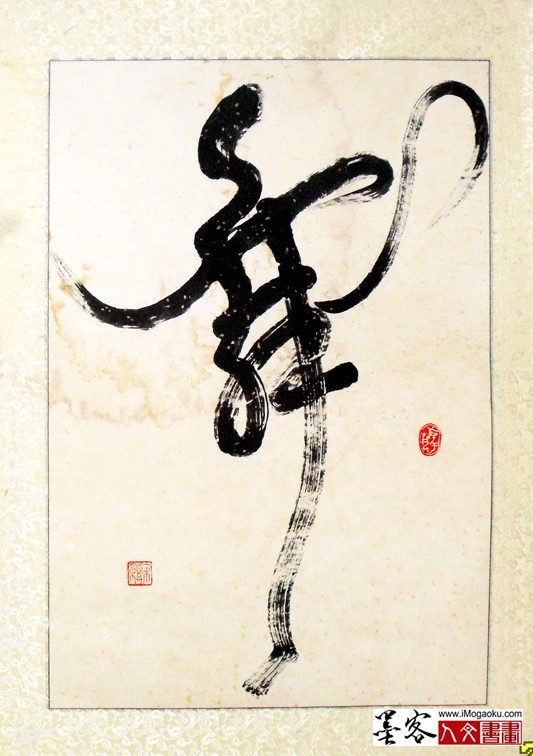 舞
墨客
www.iMogaoku.com
人文書畫